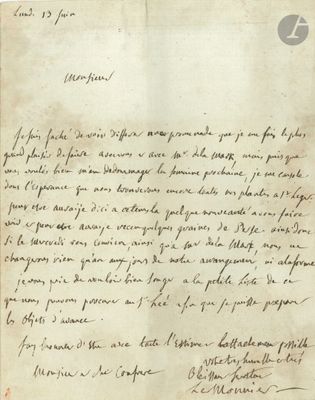 Lundi 13 Juin
Monsieur
Je suis faché de voir différer une promenade que je me fais le plus
grand plaisir de faire avec vous et avec Mr. de la Mark, mais puisque
vous voulés bien m'en dedomager la semaine prochaine, je me console
dans l'esperance que nous trouverons encore toutes nos plantes a St. Leger.
peut etre auraije d'ici a ce tems la quelque nouveauté a vous faire
voir et peut etre auraije recu quelques graines de Perse. ainsi donc
si le mercredi vous convient ainsi qu'a Mr. de la Mark, nous ne
changerons rien qu'au jour de notre arrangement, ni a la forme
je vous prie de vouloir bien songer a la petite liste de ce
que nous pouvons procurer au St. afin que je puisse preparer
les objets d'avance.
J'ay l'honneur d'etre avec toute l'estime et l'attachement possible
Monsieur et cher Confrere
votre tres humble et tres
Obeissant serviteur
Le Monnier